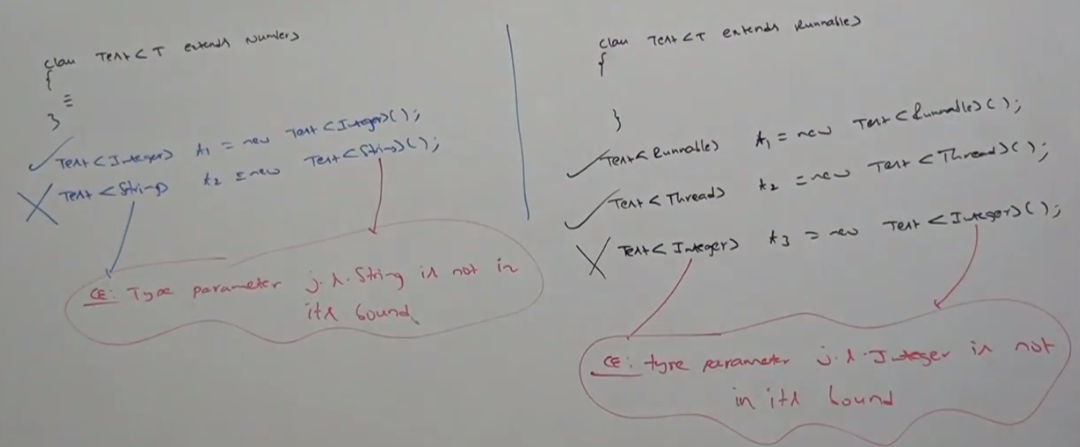 class Test<T extends Number>
{
≡
}
✓ Test<Integer> t1 = new Test<Integer>();
X Test<String> t2 = new Test<String>();
CE: Type parameter j.l.String is not in
its bound
class Test<T extends Runnable>
{
}
✓ Test<Runnable> t1 = new Test<Runnable>();
✓ Test<Thread> t2 = new Test<Thread>();
X Test<Integer> t3 = new Test<Integer>();
CE: type parameter j.l.Integer is not
in its bound